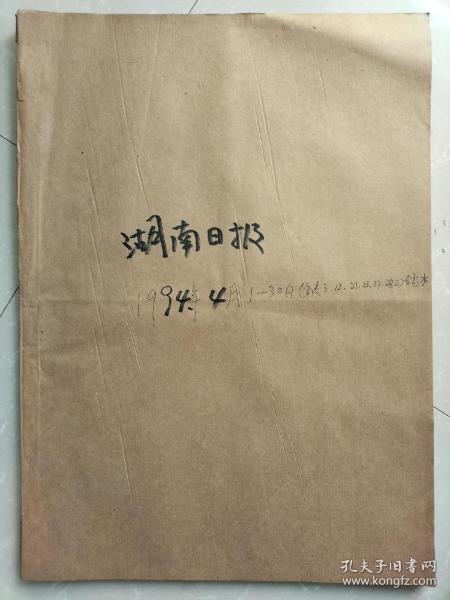 湖南日报
1994年4月1-30日(缺3.12.21.22.27.28日)合订本
孔夫子旧书网
www.kongfz.com